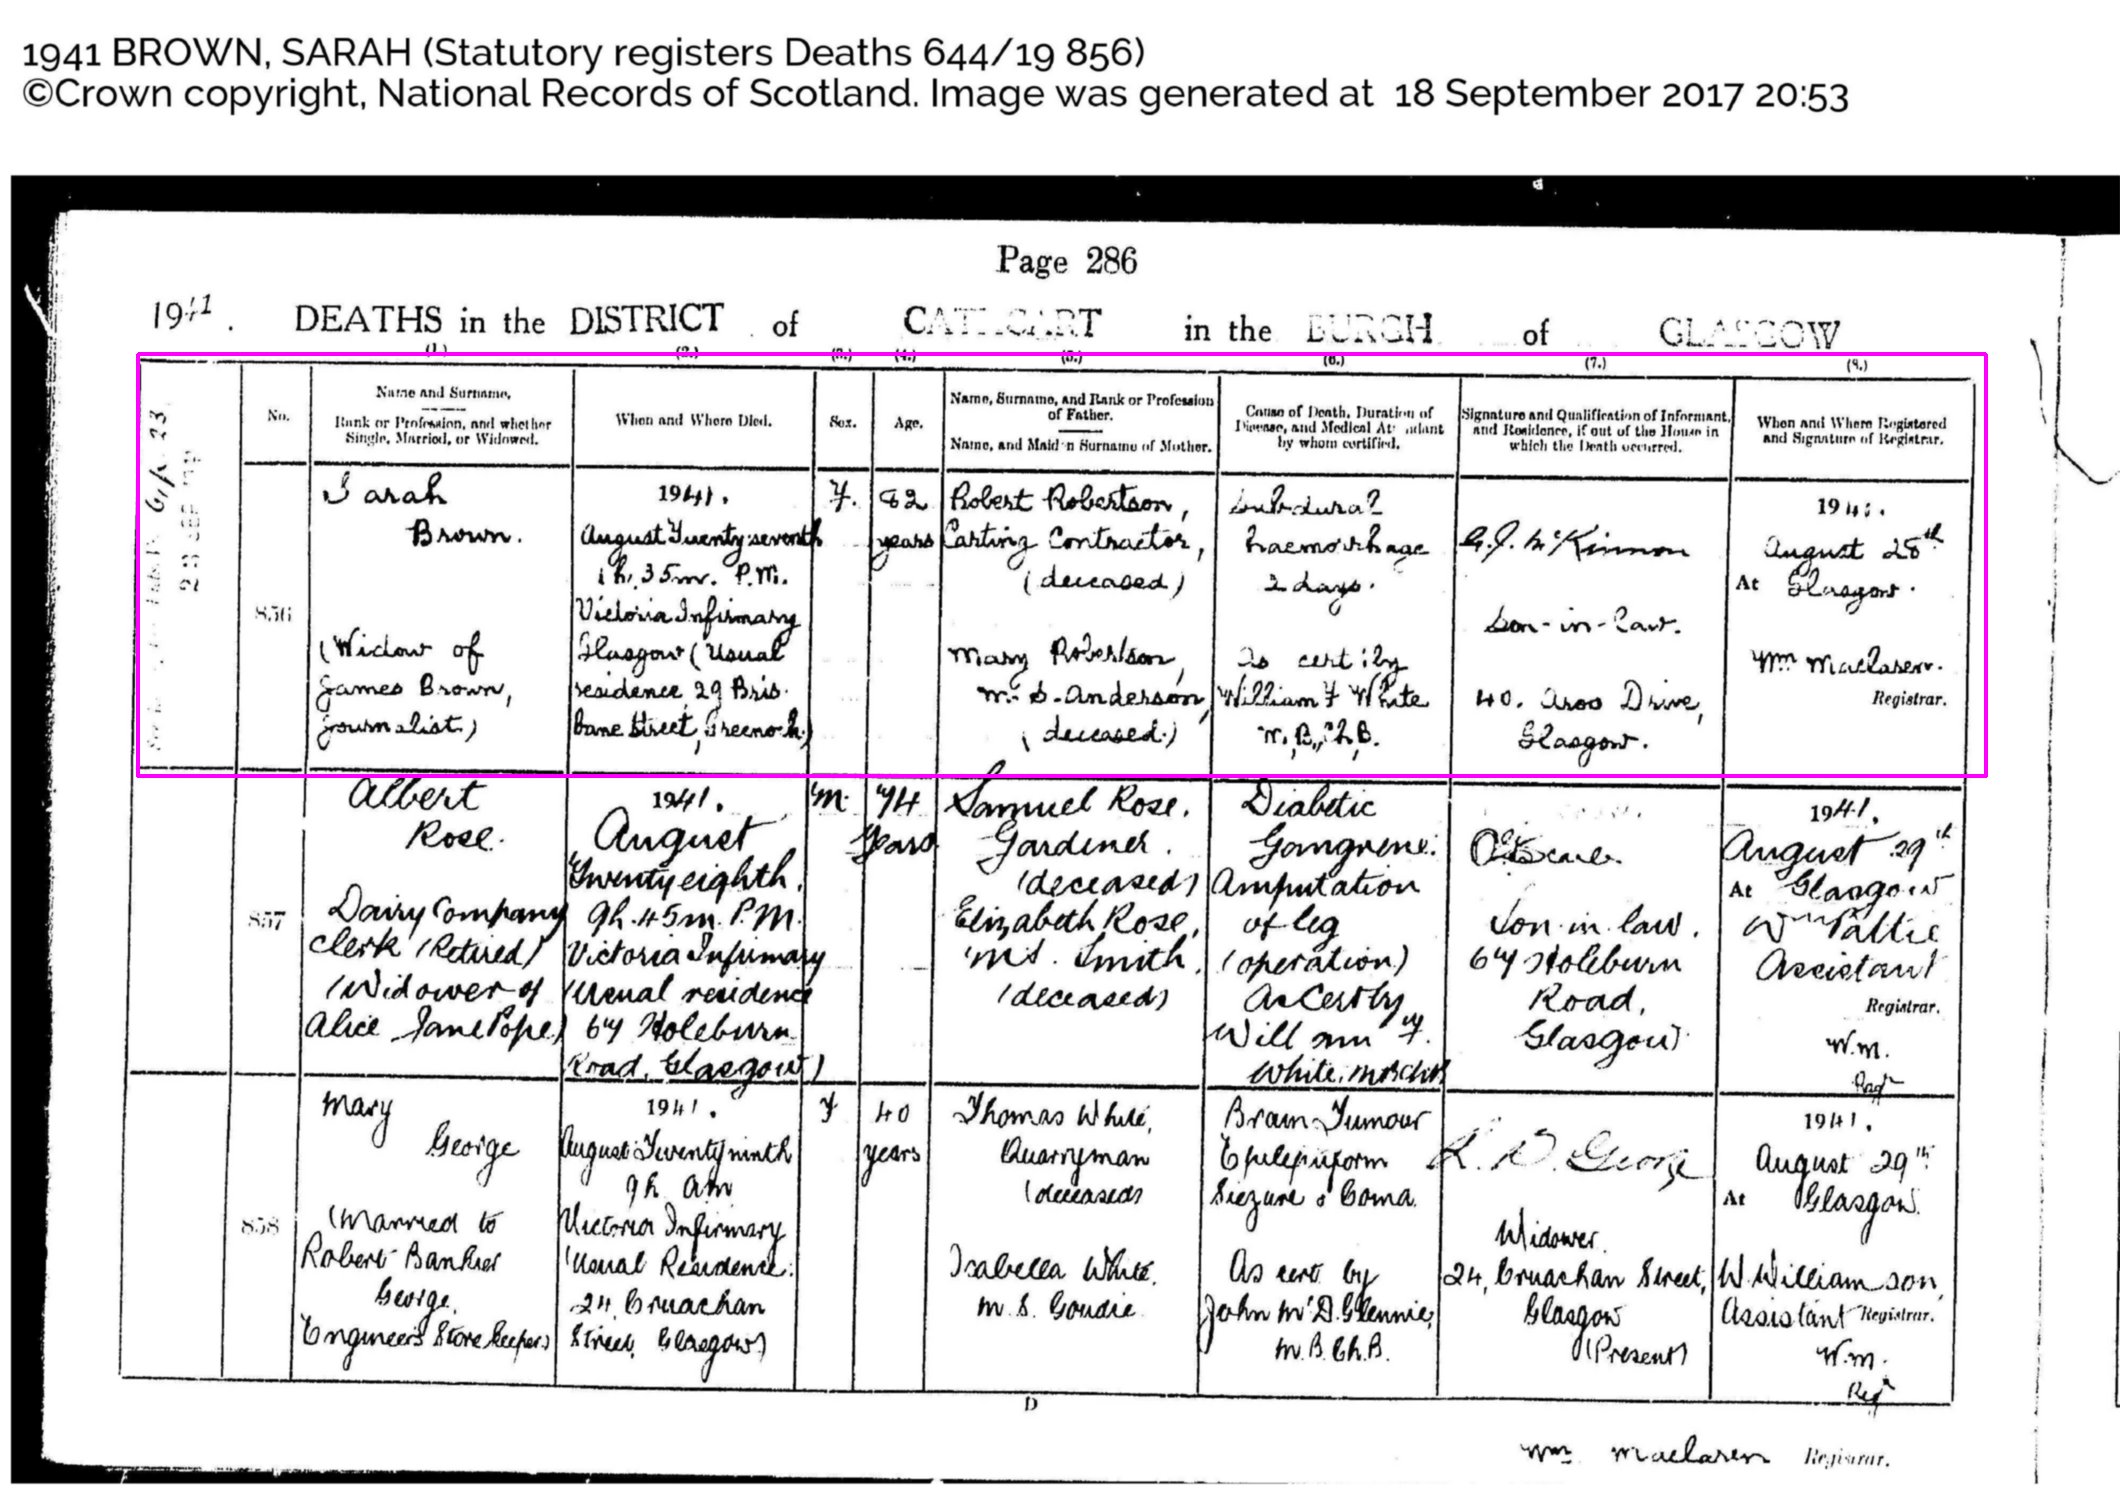 1941 BROWN, SARAH (Statutory registers Deaths 644/19 856)
©Crown copyright, National Records of Scotland. Image was generated at 18 September 2017 20:53
Page 286
1941. DEATHS in the DISTRICT of CATHCART in the BURGH of GLASGOW
(1.) (2.) (3.) (4.) (5.) (6.) (7.) (8.)
No.
Name and Surname,
Rank or Profession, and whether
Single, Married, or Widowed.
When and Where Died.
Sex.
Age.
Name, Surname, and Rank or Profession
of Father.
Name, and Maiden Surname of Mother.
Cause of Death, Duration of
Disease, and Medical Attendant
by whom certified.
Signature and Qualification of Informant,
and Residence, if out of the House in
which the Death occurred.
When and Where Registered
and Signature of Registrar.
856
Sarah
Brown.
(Widow of
James Brown,
journalist)
1941.
August Twenty seventh
1h. 35m. P.M.
Victoria Infirmary
Glasgow (Usual
residence 29 Bris-
bane Street, Greenock)
F.
82
years
Robert Robertson,
Carting Contractor,
(deceased)
Mary Robertson,
m.s. Anderson,
(deceased.)
Subdural
haemorrhage
2 days.
As cert by
William F White
M.B., Ch.B.
G.J. McKinnon
Son-in-law.
40. Aros Drive,
Glasgow.
1941.
August 28th
At Glasgow.
Wm Maclaren.
Registrar.
857
Albert
Rose.
Dairy Company
Clerk (Retired)
(Widower of
Alice Jane Pope)
1941.
August
Twenty eighth.
9h. 45m. P.M.
Victoria Infirmary
(Usual residence
64 Holeburn
Road, Glasgow)
M.
74
years
Samuel Rose.
Gardener.
(deceased)
Elizabeth Rose,
M.S. Smith.
(deceased)
Diabetic
Gangrene:
Amputation
of leg
(operation)
As Cert by
William F.
White. M.B. Ch.B.
Son in law.
64 Holeburn
Road,
Glasgow.
1941.
August 29th
At Glasgow
Wm Pattie
Assistant
Registrar.
W.M.
Regr
858
Mary
George
(Married to
Robert Bankier
George,
Engineer's Store keeper)
1941.
August Twenty ninth
9h. am
Victoria Infirmary
(Usual Residence:
24 Cruachan
Street, Glasgow)
F
40
years
Thomas White,
Quarryman
(deceased)
Isabella White,
m.s. Goudie.
Brain Tumour
Epilepiform
Siezure & Coma.
As cert by
John McD. Glennie,
M.B. Ch.B.
R. B. George
Widower.
24, Cruachan Street,
Glasgow
(Present)
1941.
August 29th
At Glasgow.
W. Williamson,
Assistant Registrar.
W.M.
Regr
D
Wm. Maclaren Registrar.